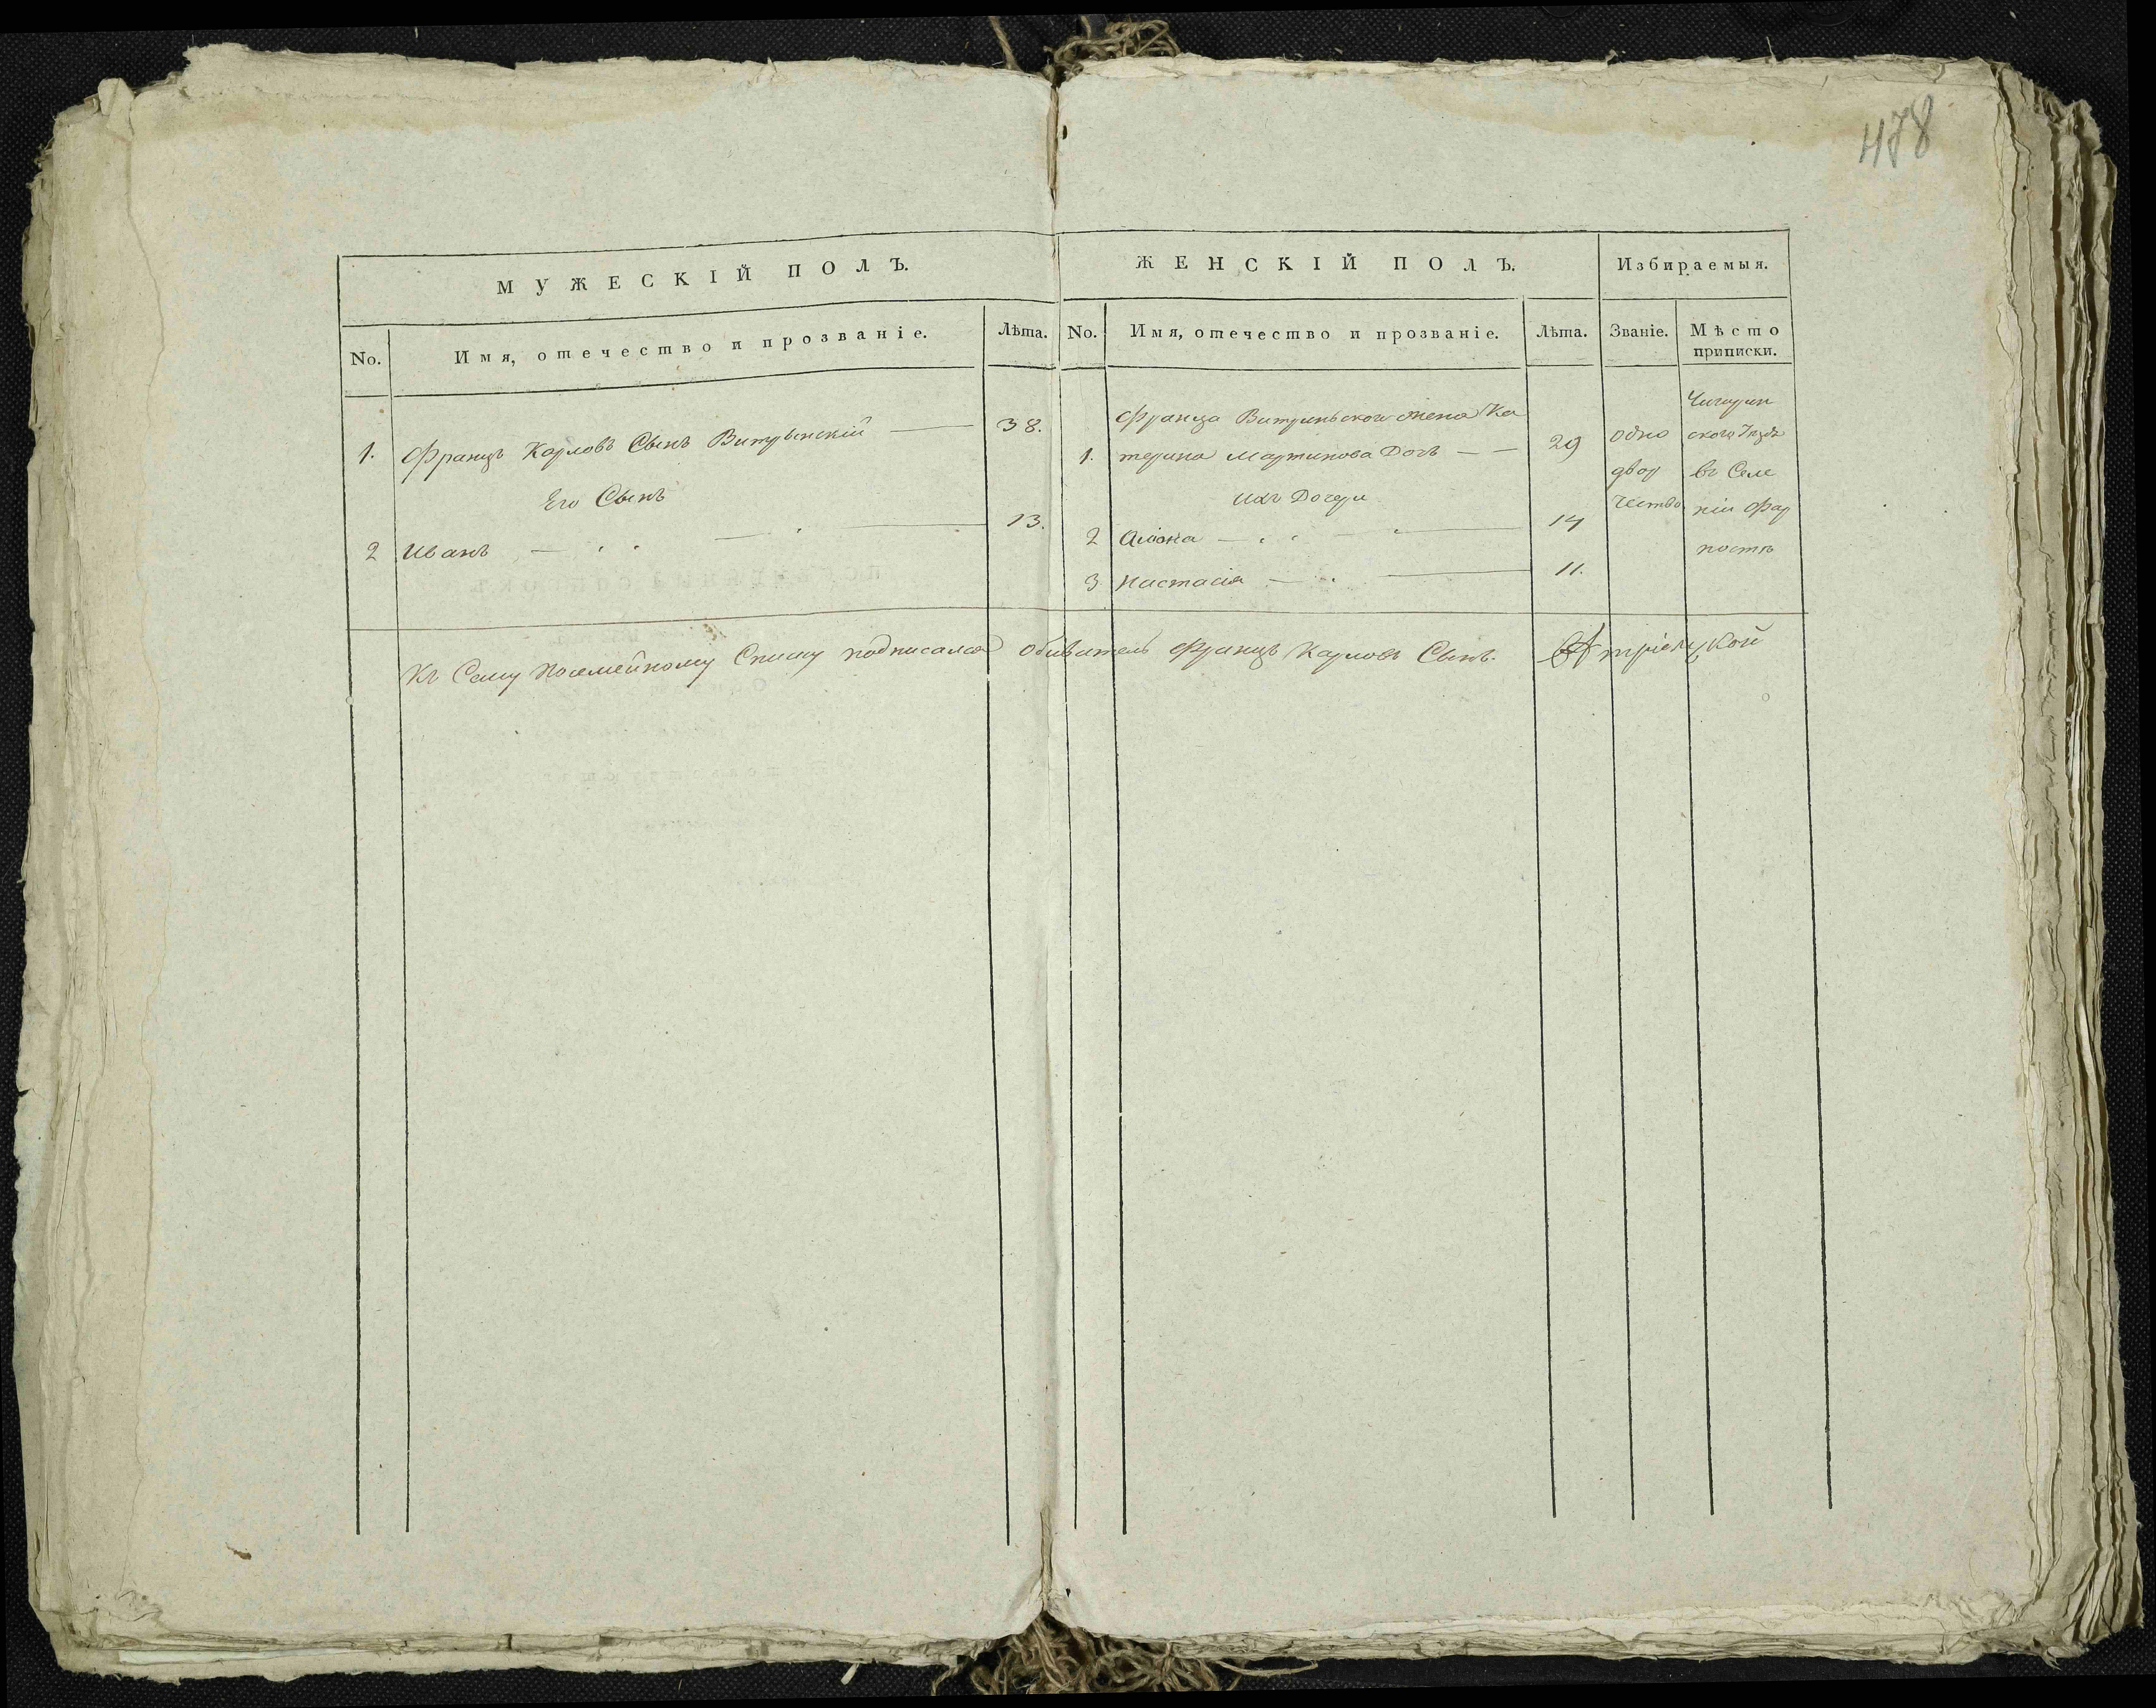 478
МУЖЕСКІЙ ПОЛЪ.
No. Имя, отечество и прозваніе. Лѣта.
1. Францъ Карловъ Сынъ 38.
Его Сынъ
2 Иванъ 13.
ЖЕНСКІЙ ПОЛЪ. Избираемыя.
No. Имя, отечество и прозваніе. Лѣта. Званіе. Мѣсто
приписки.
Франца жена Ка
1. терина Мартинова Дочь 29
Ихъ Дочери
2 Аліона 14
3 Настасія 11.
одно
двор
чество
Чигирин
ского Уезда
въ Селе
ніи Фар
посте
Къ Сему Посемейному Списку подписался Обиватель Францъ Карловъ Сынъ.